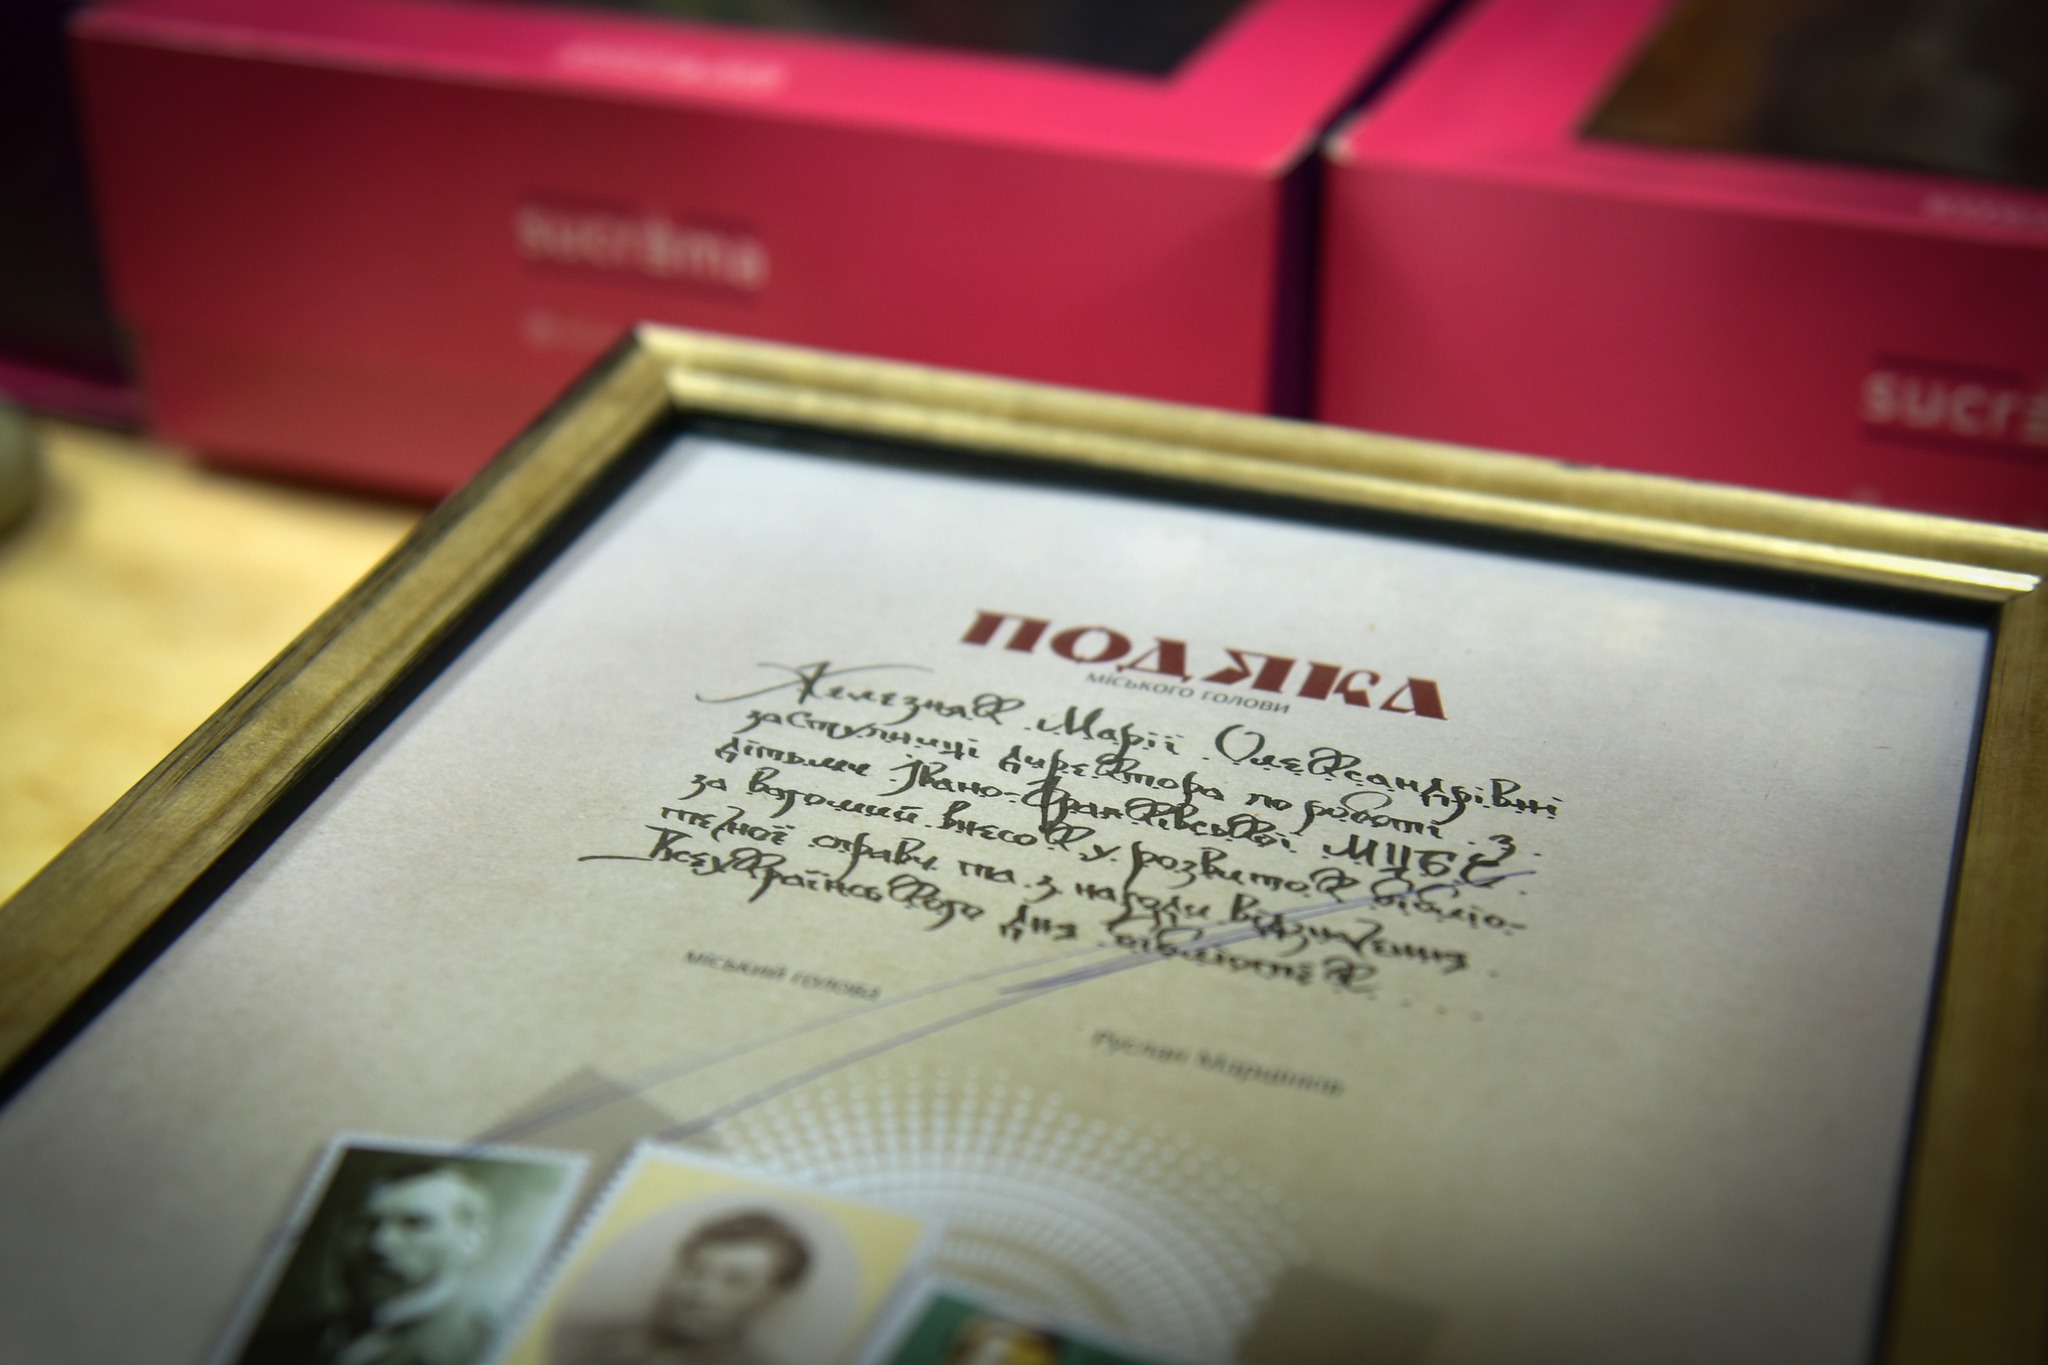 sucrema
sucre
ПОДЯКА
міського голови
Железняк Марії Олександрівні
заступниці директора по роботі з
дітьми Івано-Франківської МЦБС
за вагомий внесок у розвиток бібліо-
течної справи та з нагоди відзначення
Всеукраїнського дня бібліотек
міський голова
Руслан Марцінків